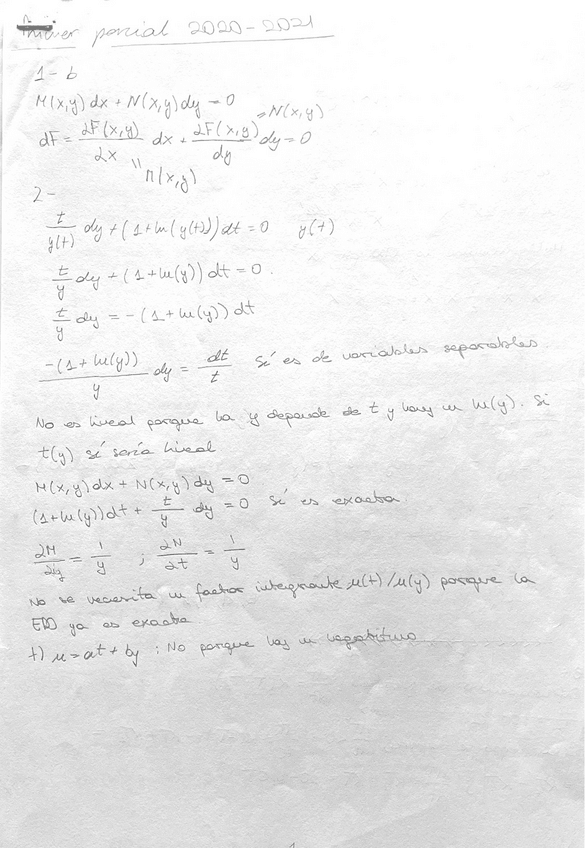 Primer parcial 2020-2021
1- b
M(x,y) dx + N(x,y) dy = 0
= N(x,y)
dF = ∂F(x,y)/∂x dx + ∂F(x,y)/dy dy = 0
" M(x,y)
2-
t/y(t) dy + (1+ln(y(t))) dt = 0 y(t)
t/y dy + (1+ln(y)) dt = 0.
t/y dy = -(1+ln(y)) dt
-(1+ln(y))/y dy = dt/t Sí es de variables separables.
No es lineal porque la y depende de t y hay un ln(y). Si
t(y) sí sería lineal
M(x,y) dx + N(x,y) dy = 0
(1+ln(y)) dt + t/y dy = 0 Sí es exacta.
∂M/∂y = 1/y ; ∂N/∂t = 1/y
No se necesita un factor integrante μ(t)/μ(y) porque la
EDO ya es exacta
f) u = at + by : No porque hay un logaritmo